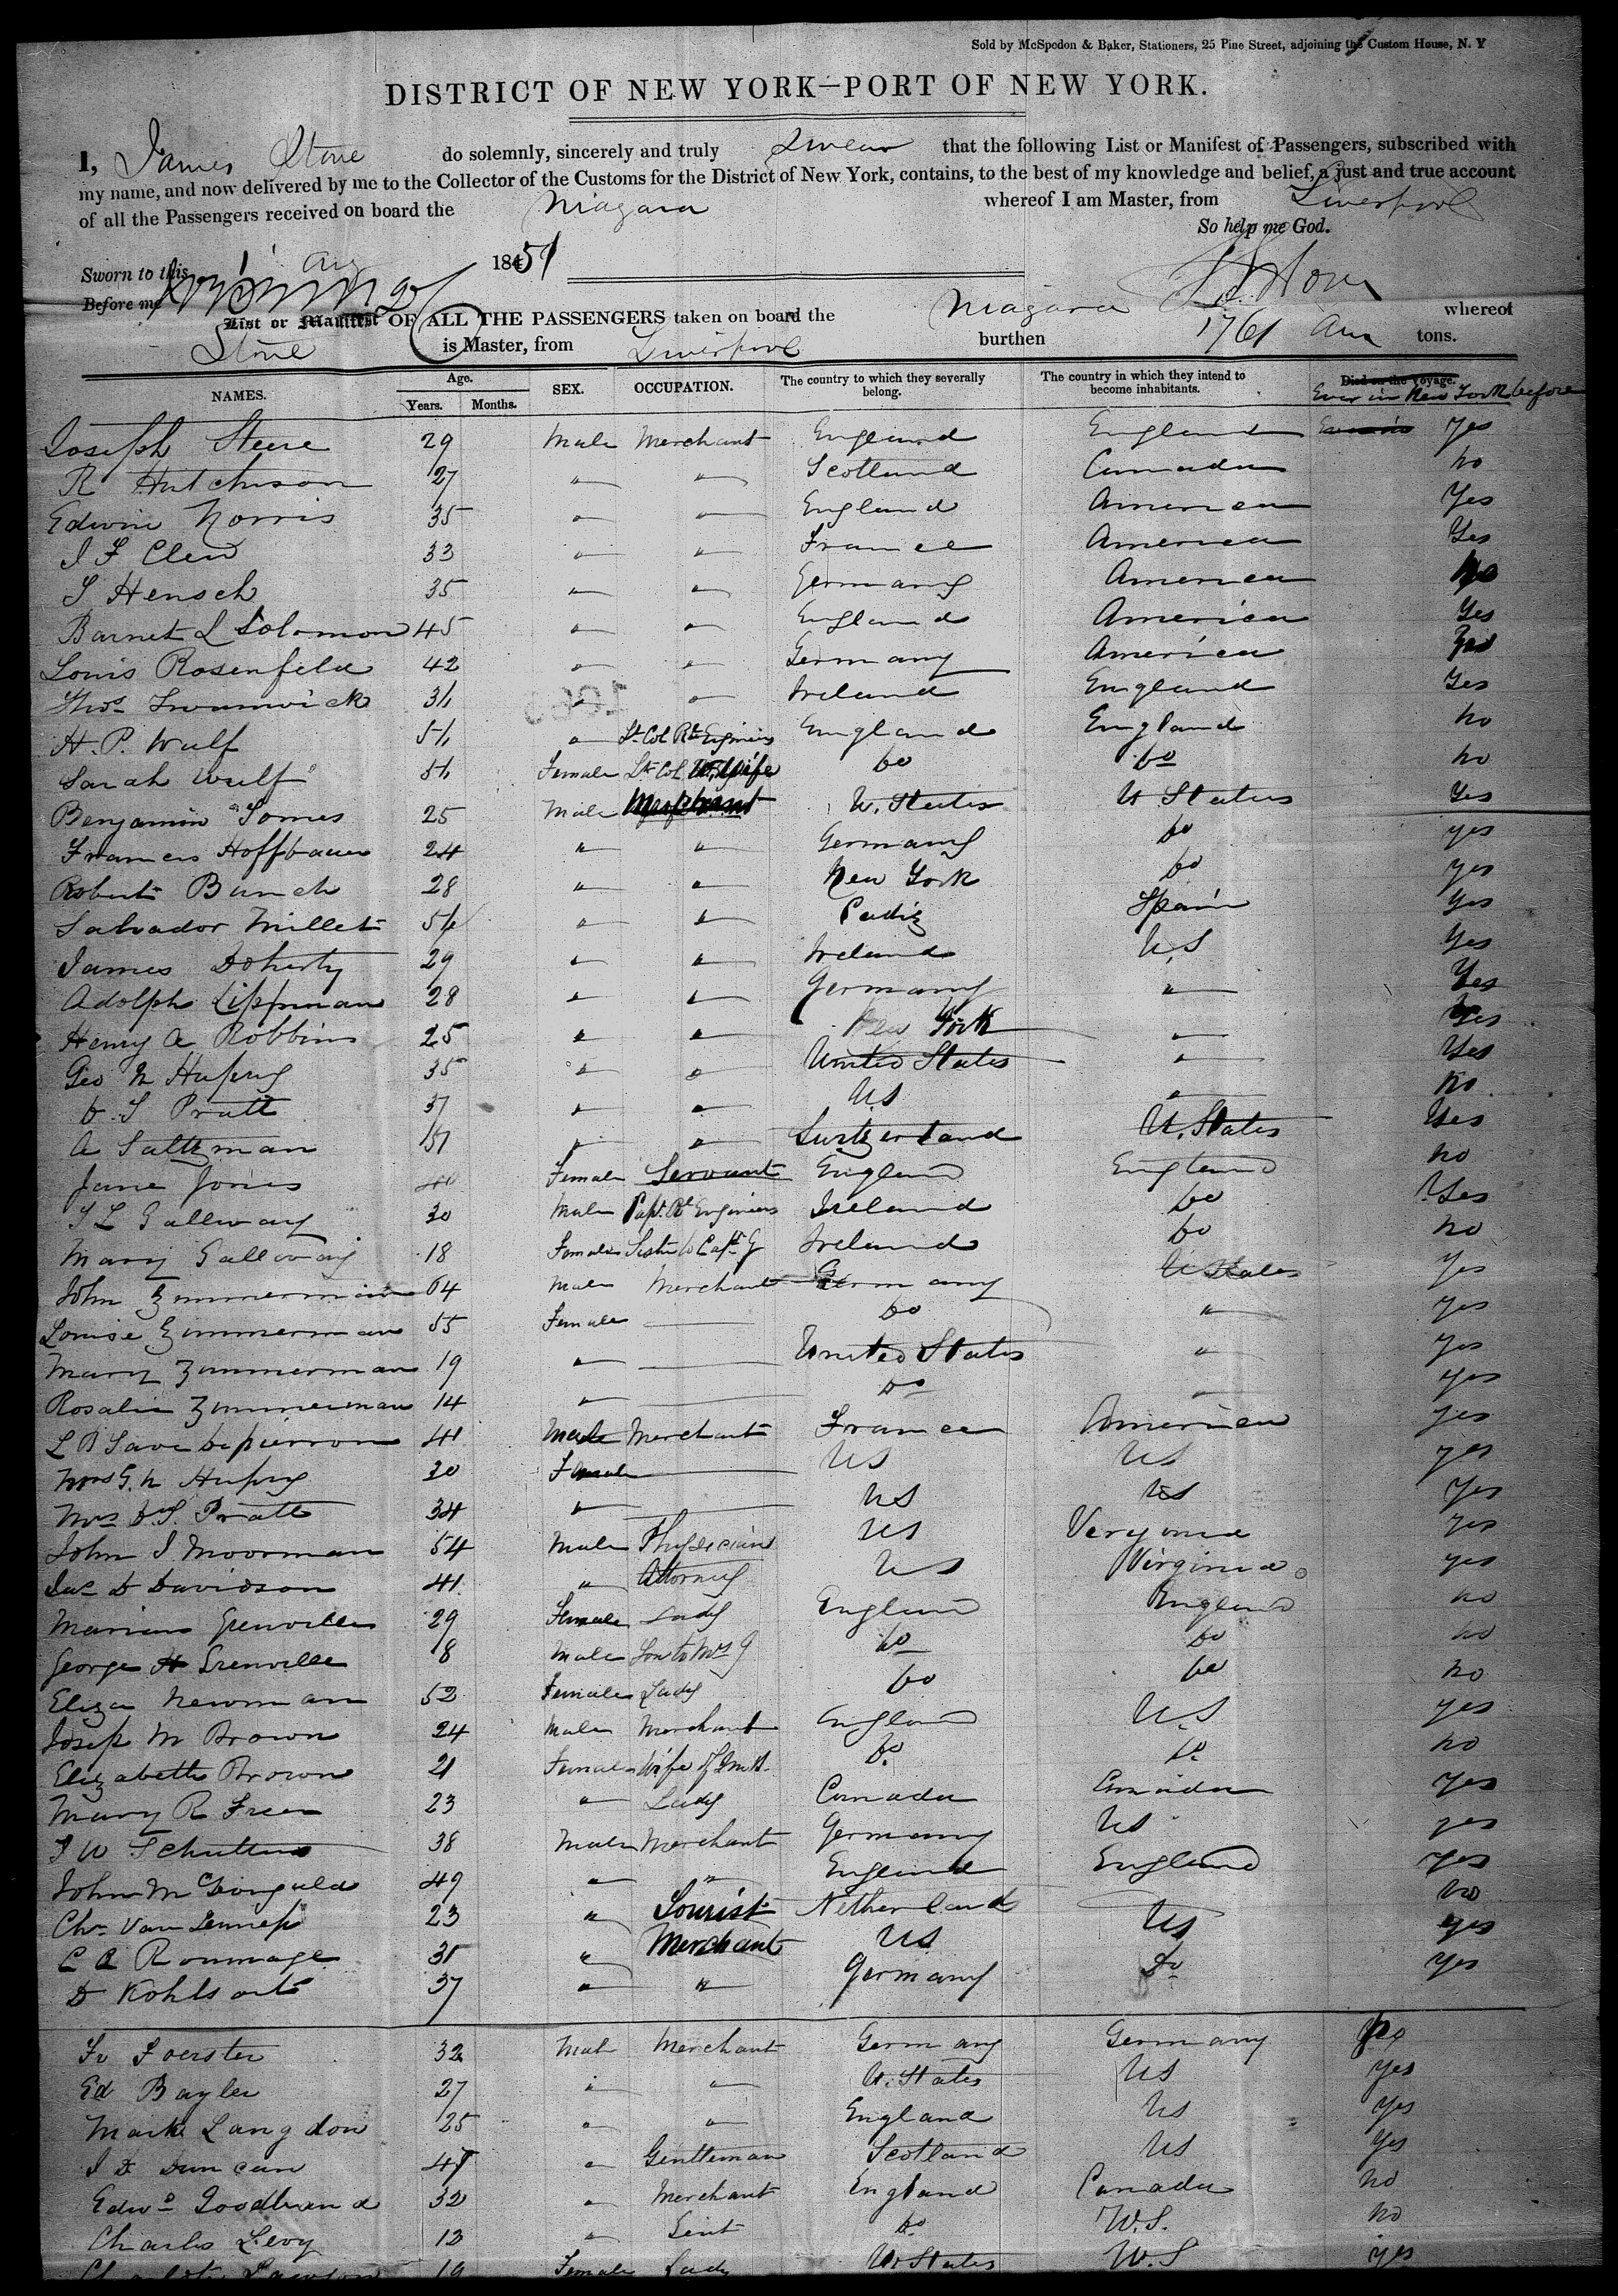 Sold by McSpedon & Baker, Stationers, 25 Pine Street, adjoining the Custom House, N. Y
DISTRICT OF NEW YORK—PORT OF NEW YORK.
I, James Stone do solemnly, sincerely and truly swear that the following List or Manifest of Passengers, subscribed with
my name, and now delivered by me to the Collector of the Customs for the District of New York, contains, to the best of my knowledge and belief, a just and true account
of all the Passengers received on board the Niagara whereof I am Master, from Liverpool
So help me God.
Sworn to this 1 Aug 1851
Before me
J Stone
List or Manifest OF ALL THE PASSENGERS taken on board the Niagara whereof
Stone is Master, from Liverpool burthen 1761 tons.
NAMES. Age. Years. Months. SEX. OCCUPATION. The country to which they severally belong. The country in which they intend to become inhabitants. Died on the voyage. Ever in New York before
Joseph Steere 29 Male Merchant England England Yes
R Hutchison 27 " " Scotland Canada no
Edwin Norris 35 " " England America Yes
J F Clew 33 " " France America Yes
S Hensch 35 " " Germany America
Barnet L Solomon 45 " " England America Yes
Louis Rosenfeld 42 " " Germany America Yes
Thos Swanwick 31 " " Ireland England Yes
H. P. Wulf 51 " Lt Col Rl Engineers England England no
Sarah Wulf 51 Female Lt Col Wife Do Do no
Benjamin Tomes 25 Male Merchant U. States U States Yes
Frances Hoffbauer 24 " " Germany Do yes
Robert Bunch 28 " " New York Do yes
Salvador Millet 54 " " Cadiz Spain Yes
James Doherty 29 " " Ireland U,S Yes
Adolph Lippman 28 " " Germany " Yes
Henry A Robbins 25 " " New York " Yes
Geo N 35 " " United States " Yes
D. S Pratt 37 " " US " No
A Saltzman 51 " " Switzerland U. States Yes
Jane Jones Female Servant England England no
T L Gallway 30 Male Capt. Rl Engineers Ireland Do Yes
Mary Gallway 18 Female Sister to Capt G Ireland Do no
John Zimmerman 64 Male Merchant Germany U States yes
Louise Zimmerman 55 Female Do " yes
Mary Zimmerman 19 " United States " yes
Rosalie Zimmerman 14 " Do " yes
L B 41 Male Merchant France America yes
Mrs G. N 30 Female US US yes
Mrs D. S. Pratt 34 " US US Yes
John J Moorman 54 Male Physician US yes
Jas D Davidson 41 " Attorney US Virginia yes
Marian Grenville 29 Female Lady England England no
George Grenville 8 Male Son to Mrs G Do Do no
Eliza Newman 52 Female Lady Do Do no
Josep M Brown 24 Male Merchant England U.S yes
Elizabeth Brown 21 Female Wife of J M B. Do. Do. no
Mary R Freer 23 " Lady Canada Canada Yes
J W 38 Male Merchant Germany US yes
John McDongald 49 " " England England Yes
Chs Van Lennep 23 " Tourist Netherland no
C A 31 " Merchant US US yes
D Kohlsaat 37 " " Germany Do yes
Fr Foerster 32 Male Merchant Germany Germany
Ed Bayler 27 " " U. States US Yes
Mark Langdon 25 " " England US Yes
J D Duncan 47 " Gentleman Scotland US Yes
Edwd Goodbrand 32 " Merchant England Canada no
Charles Levy 13 " Gent Do U.S. no
Charlotte Lawson 19 Female Lady U. States U.S yes